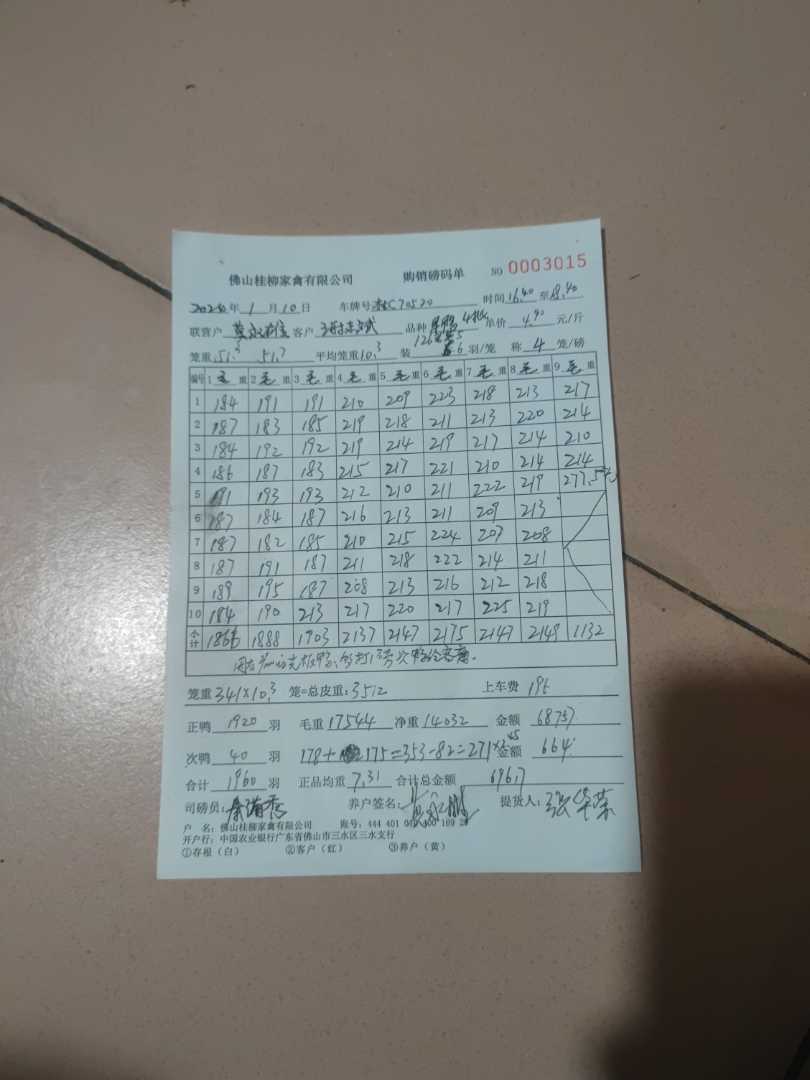 佛山桂柳家禽有限公司 购销磅码单 NO 0003015
年 1 月 10 日 车牌号 C70520 时间 16.40 至 18.40
联营户 客户 品种 单价 4.90 元/斤
笼重 51.3 51.7 平均笼重 10.3 装 6 羽/笼 称 4 笼/磅
编号 1 毛 重 2 毛 重 3 毛 重 4 毛 重 5 毛 重 6 毛 重 7 毛 重 8 毛 重 9 毛 重
1 184 191 191 210 209 223 218 213 217
2 187 183 185 219 218 211 213 220 214
3 184 192 192 219 214 219 217 214 210
4 186 187 183 215 217 221 210 214 214
5 191 193 193 212 210 211 222 219 277.5
6 187 184 187 216 213 211 209 213
7 187 182 185 210 215 224 207 208
8 187 191 187 211 218 222 214 211
9 189 195 187 208 213 216 212 218
10 184 190 213 217 220 217 225 219
合计 1866 1888 1903 2137 2147 2175 2147 2149 1132
笼重 341×10.3 笼=总皮重: 3512 上车费 196
正鸭 1920 羽 毛重 17544 净重 14032 金额 68757
次鸭 40 羽 178+175=353-82=271×2.45 金额 664
合计 1960 羽 正品均重 7.31 合计总金额 69617
司磅员: 养户签名: 提货人:
户 名: 佛山桂柳家禽有限公司 账号: 444 401 0 400 109 2
开户行: 中国农业银行广东省佛山市三水区三水支行
①存根(白) ②客户(红) ③养户(黄)